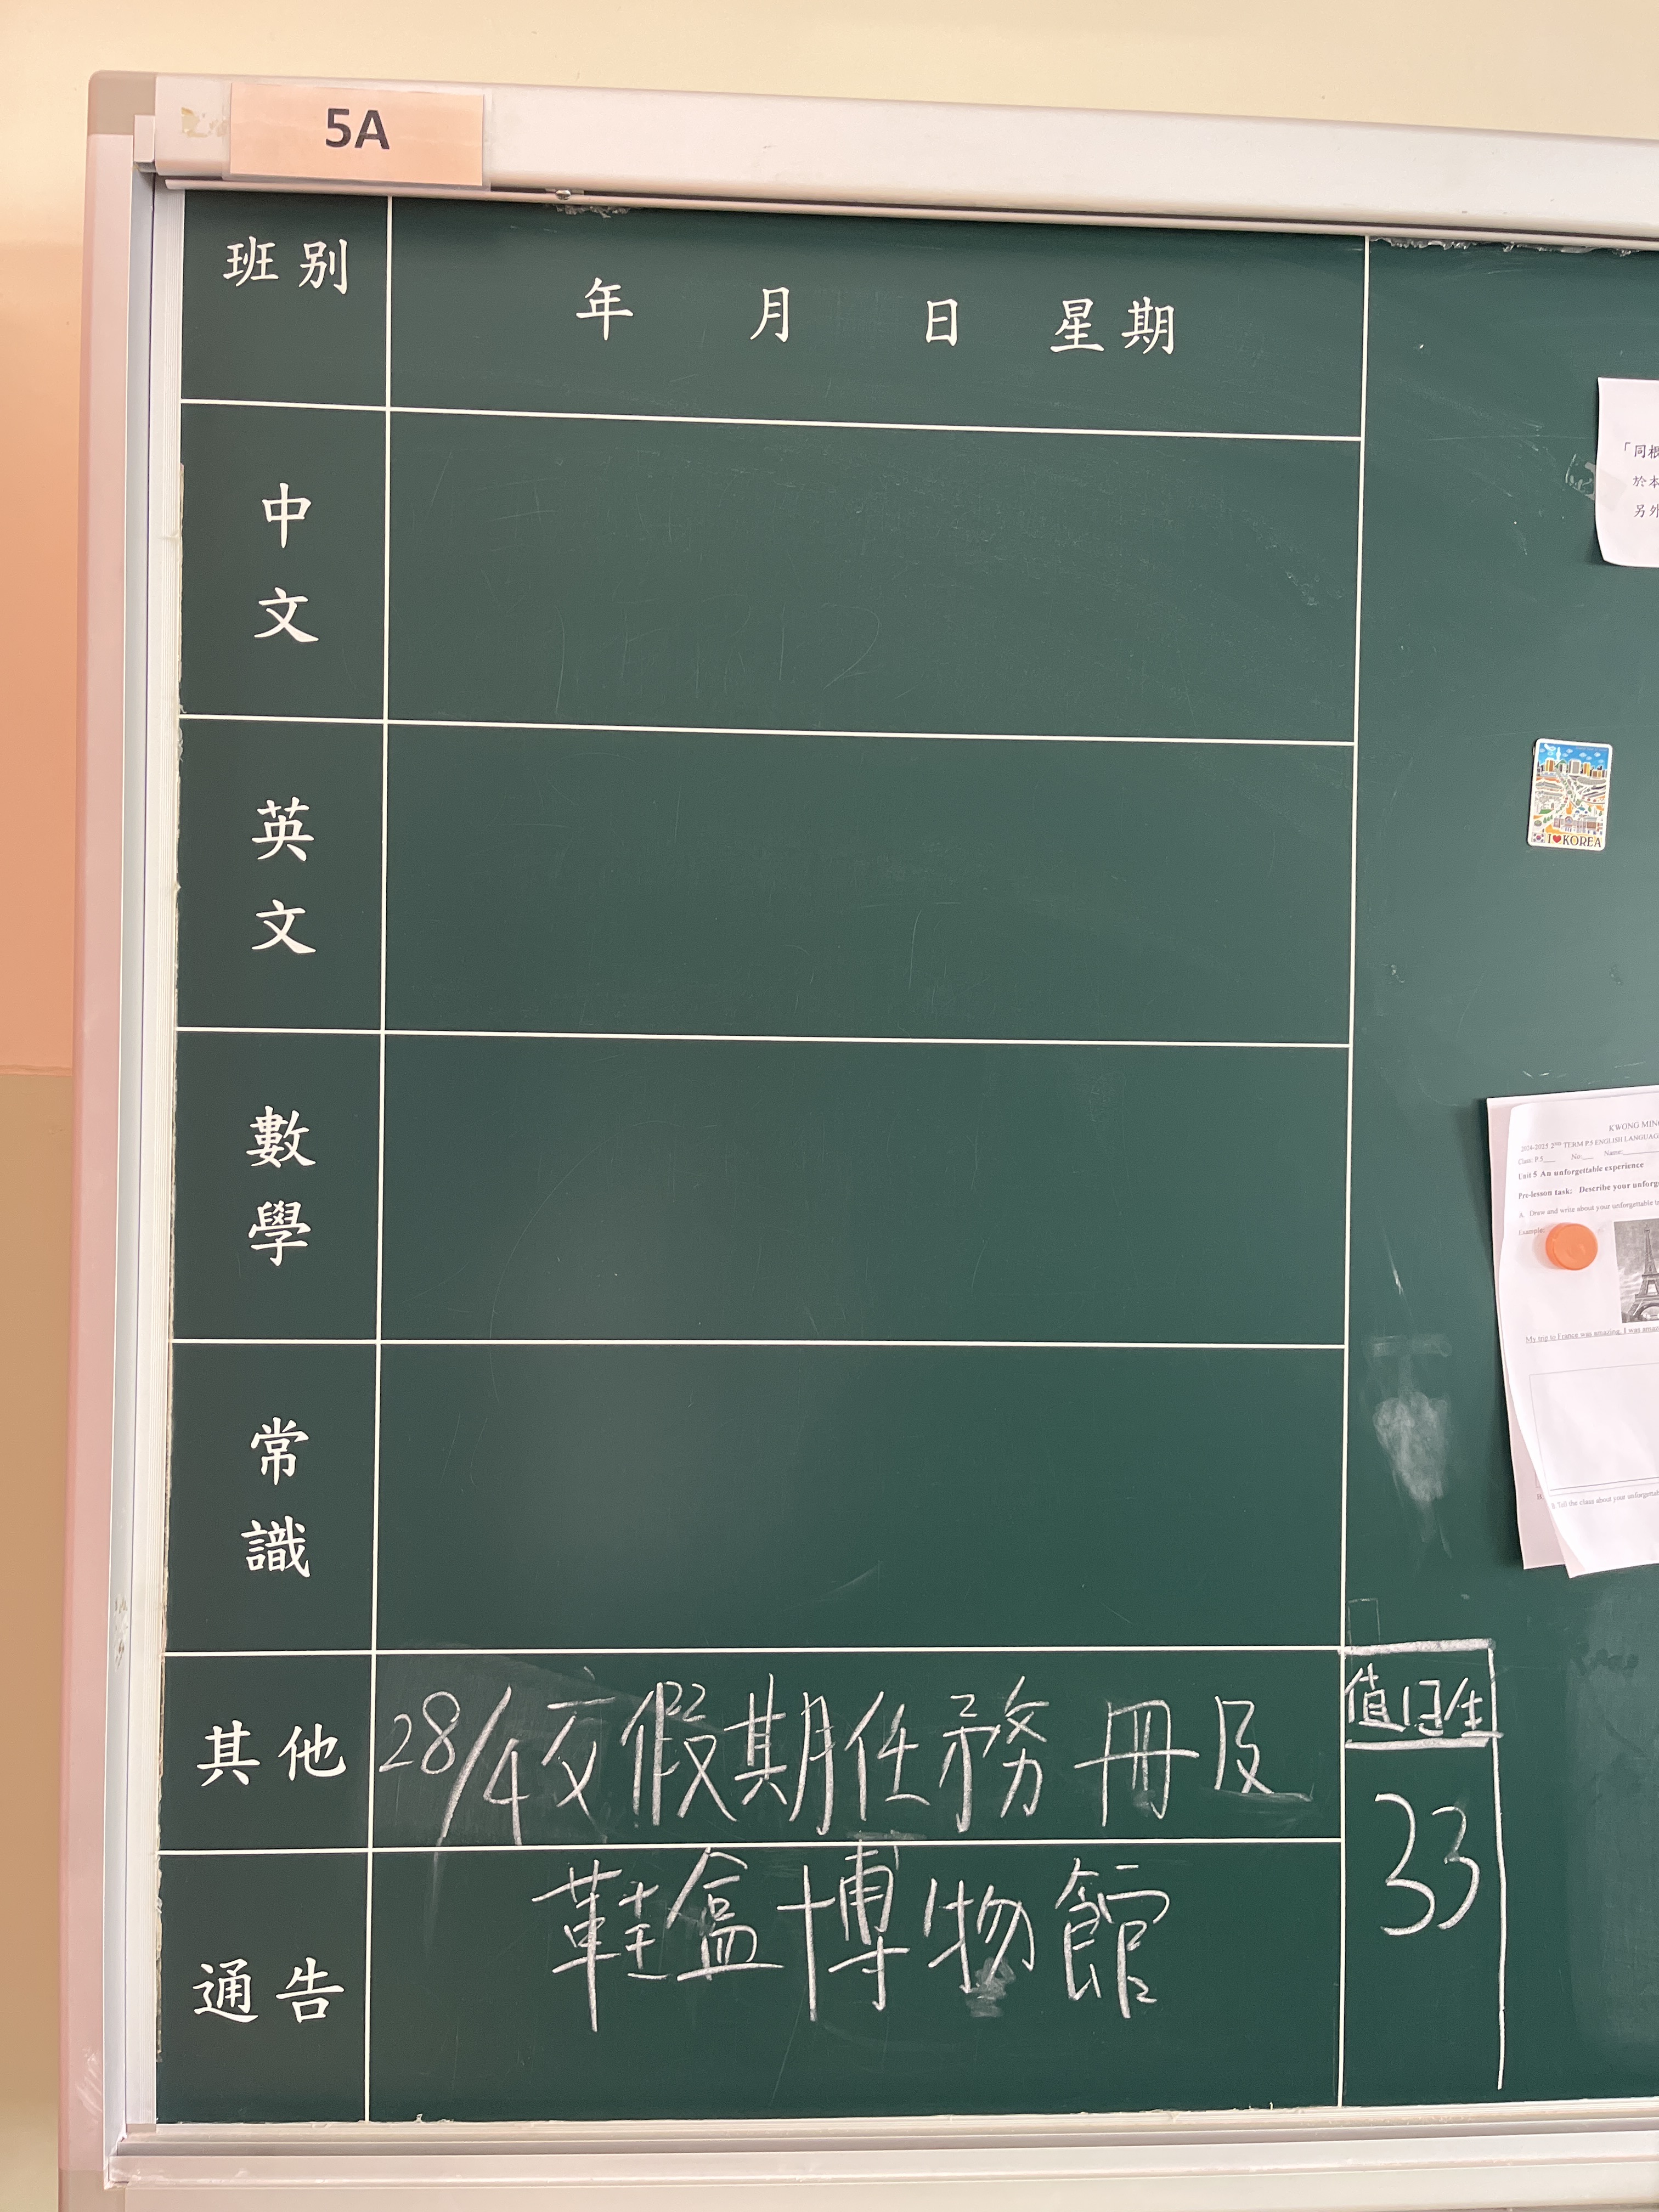 5A
班別
年 月 日 星期
中文
英文
數學
常識
其他
28/4交假期任務冊及
通告
鞋盒博物館
值日生
33
「同根
於本
另外
I KOREA
KWONG MING
2024-2025 2ND TERM P.5 ENGLISH LANGUAG
Class: P.5___ No:___ Name:
Unit 5 An unforgettable experience
Pre-lesson task: Describe your unforg
A. Draw and write about your unforgettable t
Example:
My trip to France was amazing. I was amaz
B. Tell the class about your unforgettab